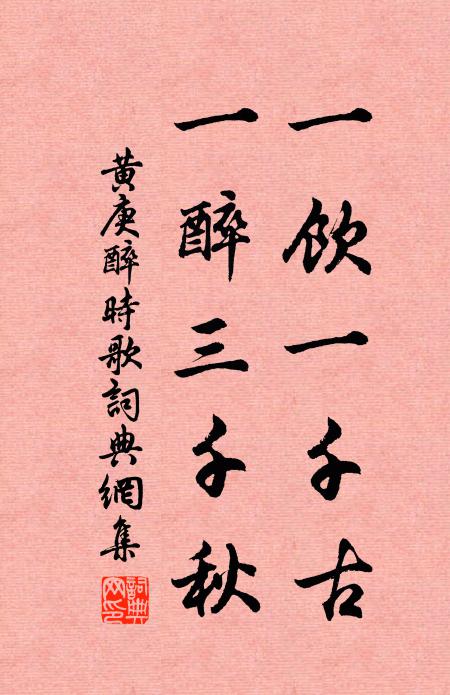 一飲一千古
一醉三千秋
黄庚醉時歌詞典網集
詞典网印